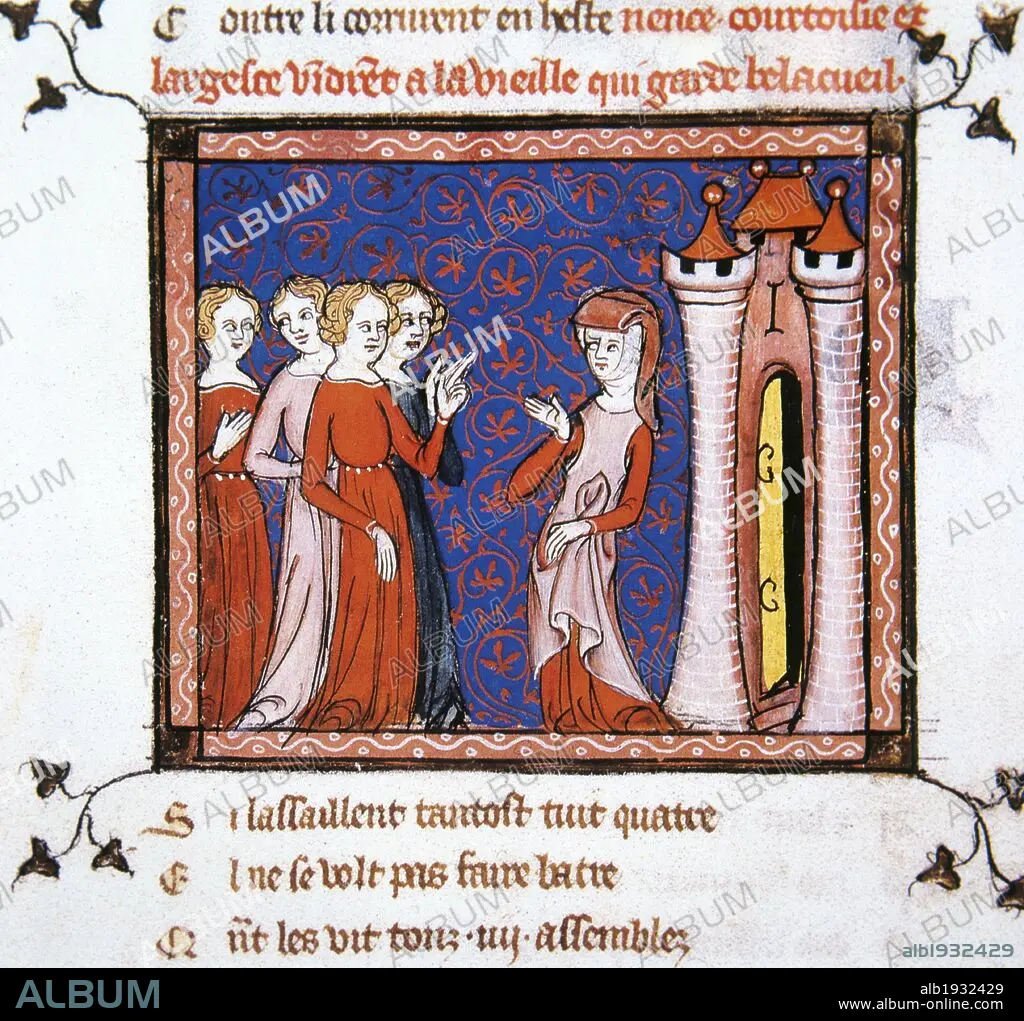 C ontre li corrurent en heste nence · courtoisie et
largesce vīdrēt a la vieille qui garde bel acueil ·
S i lassaillent tantost tuit quatre
E l ne se volt pas faire batre
Q nt̄ les vit touz · iiij · assemblez
ALBUM
alb1932429
ALBUM
alb1932429
www.album-online.com